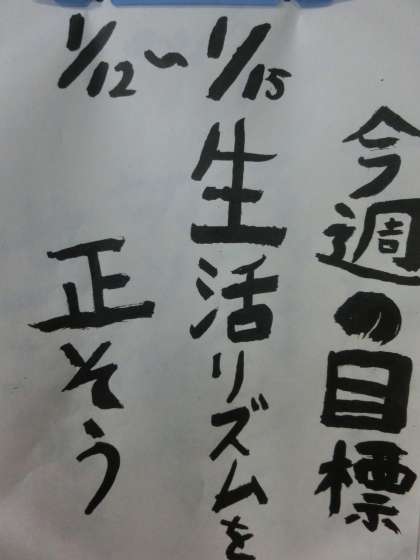 今週の目標
1/12〜1/15
生活リズムを
正そう